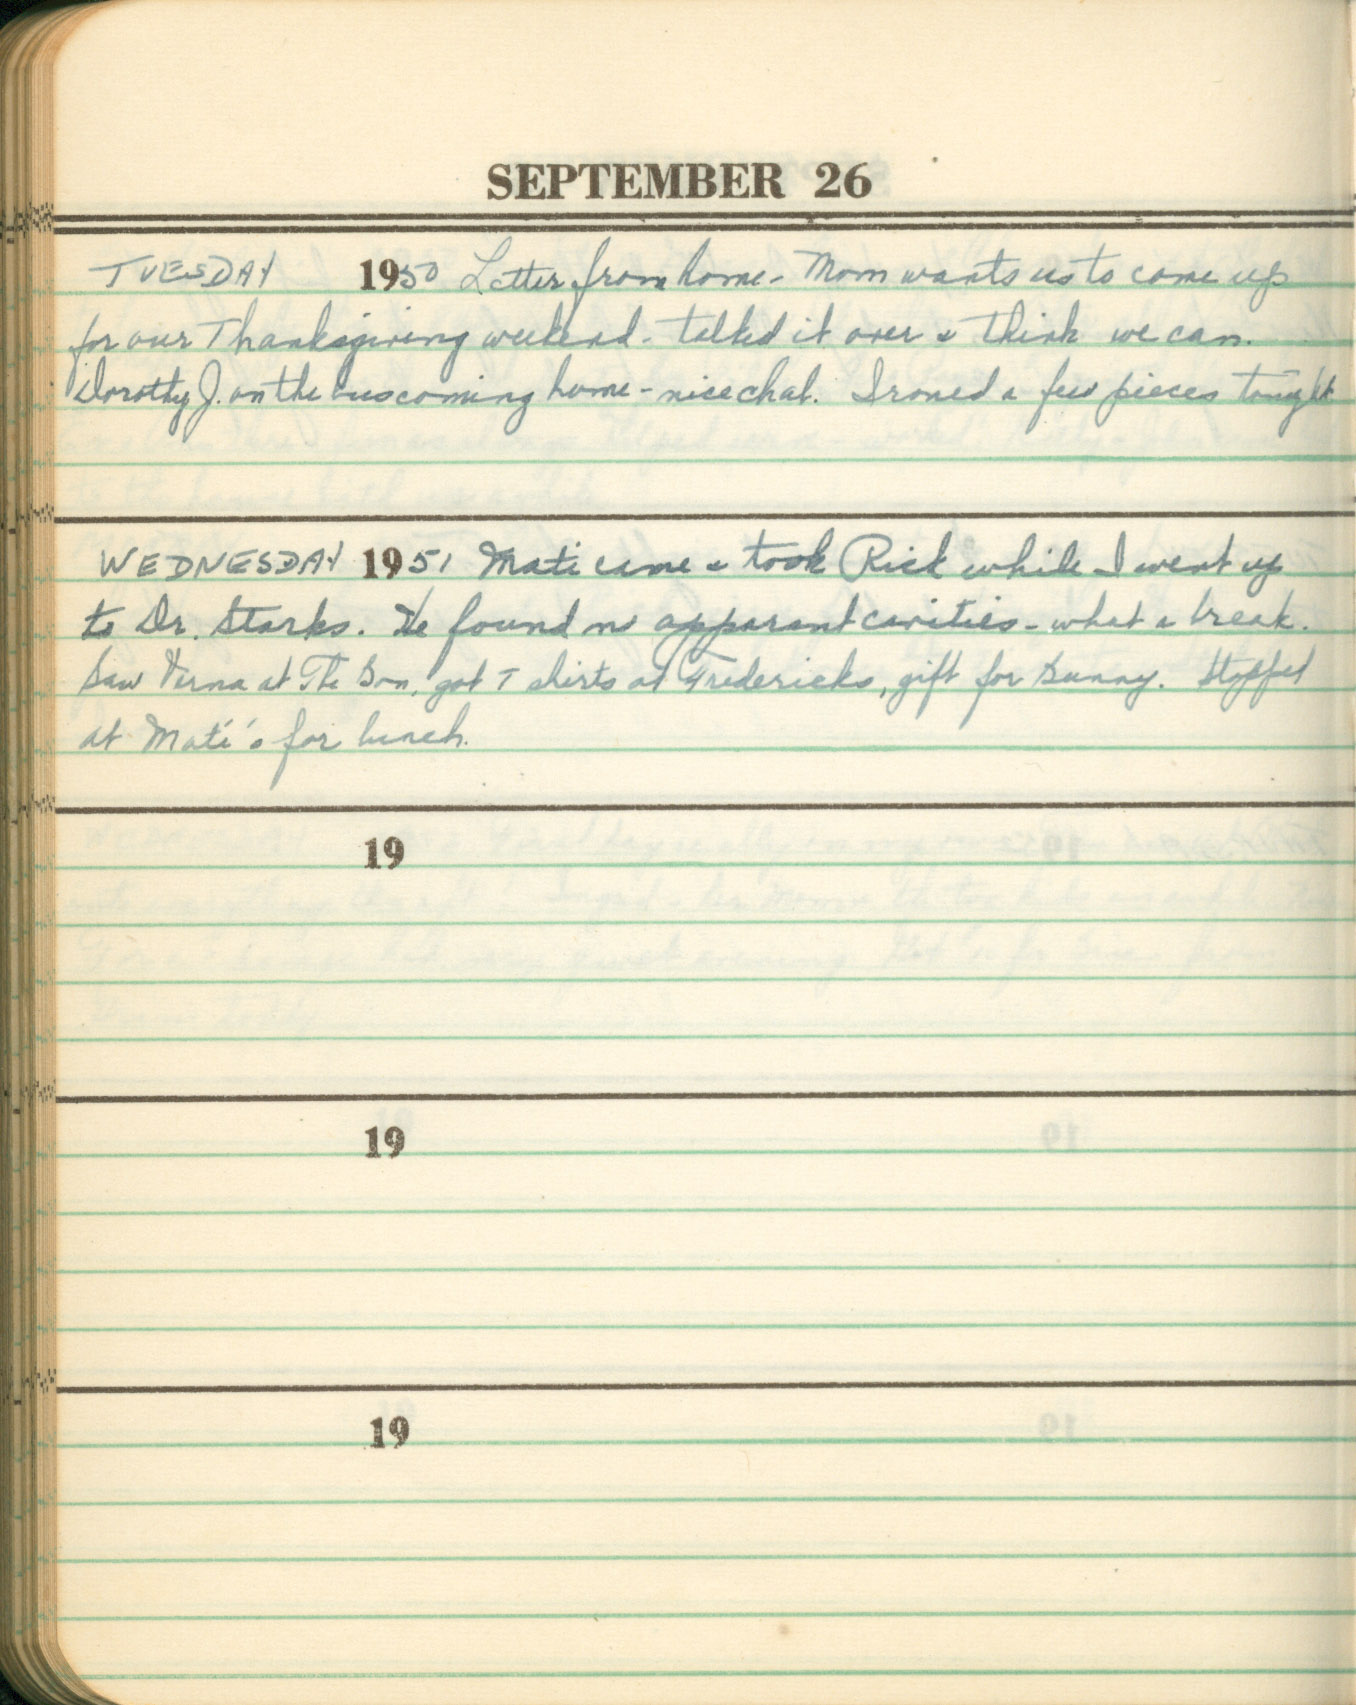 SEPTEMBER 26
TUESDAY 1950 Letter from home - Mom wants us to come up
for our Thanksgiving weekend - talked it over & think we can.
Dorothy J. on the bus coming home - nice chat. Ironed a few pieces tonight
WEDNESDAY 1951 Mati came & took Rick while I went up
to Dr. Starks. He found no apparant cavities - what a break.
Saw Verna at The Bon, got T shirts at Fredericks, gift for Bunny. Stopped
at Mati's for lunch.
19
19
19